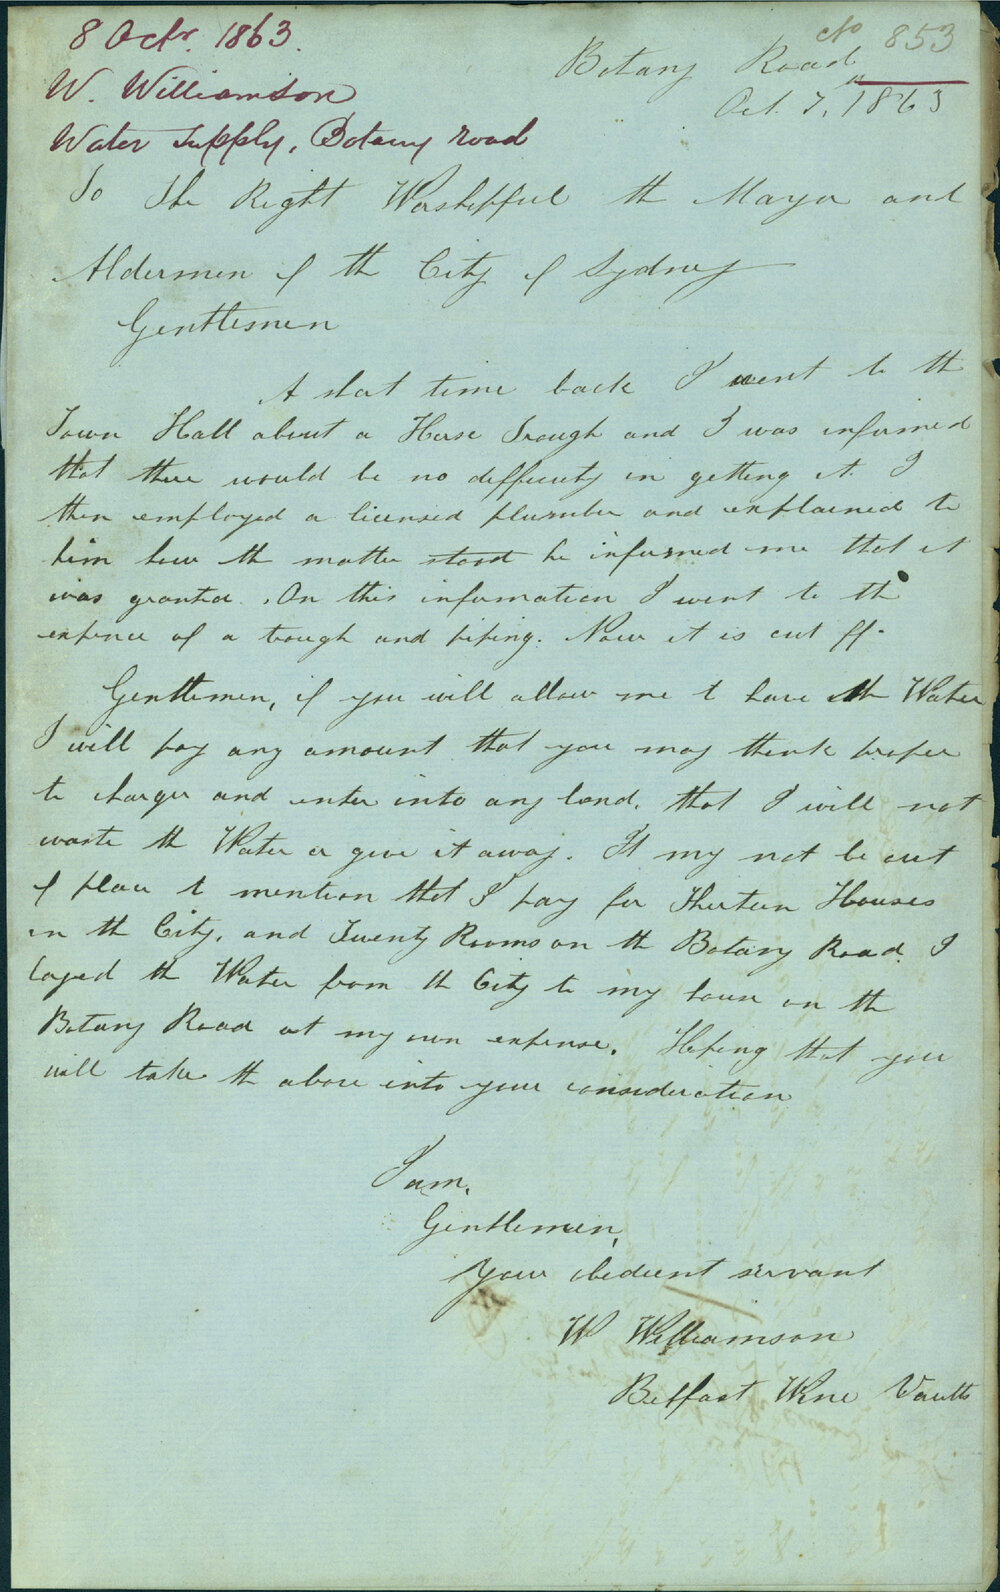 8 Octr. 1863.
W. Williamson
Water Supply, Botany road
No 853
Botany Road
Oct. 7, 1863
To The Right Worshipful th Mayor and
Aldermen of th City of Sydney
Gentlesmen
A short time back I went to th
Town Hall about a Horse Trough and I was informed
that there would be no difficuty in getting it. I
then employed a licensed plumber and explained to
him how th matter stood he informed me that it
was granted. On this information I went to th
expence of a trough and piping. Now it is cut off.
Gentlemen, if you will allow me to have th Water
I will pay any amount that you may think proper
to charge and enter into any bond. that I will not
waste th Water or give it away. It my not be out
of place to mention that I pay for Thirteen Houses
in th City, and Twenty Rooms on th Botany Road. I
layed th Water from th City to my house on th
Botany Road at my own expense. Hoping that you
will take th above into your consideration
I am,
Gentlemen,
Your obedient servant
W Williamson
Belfast Wine Vaults